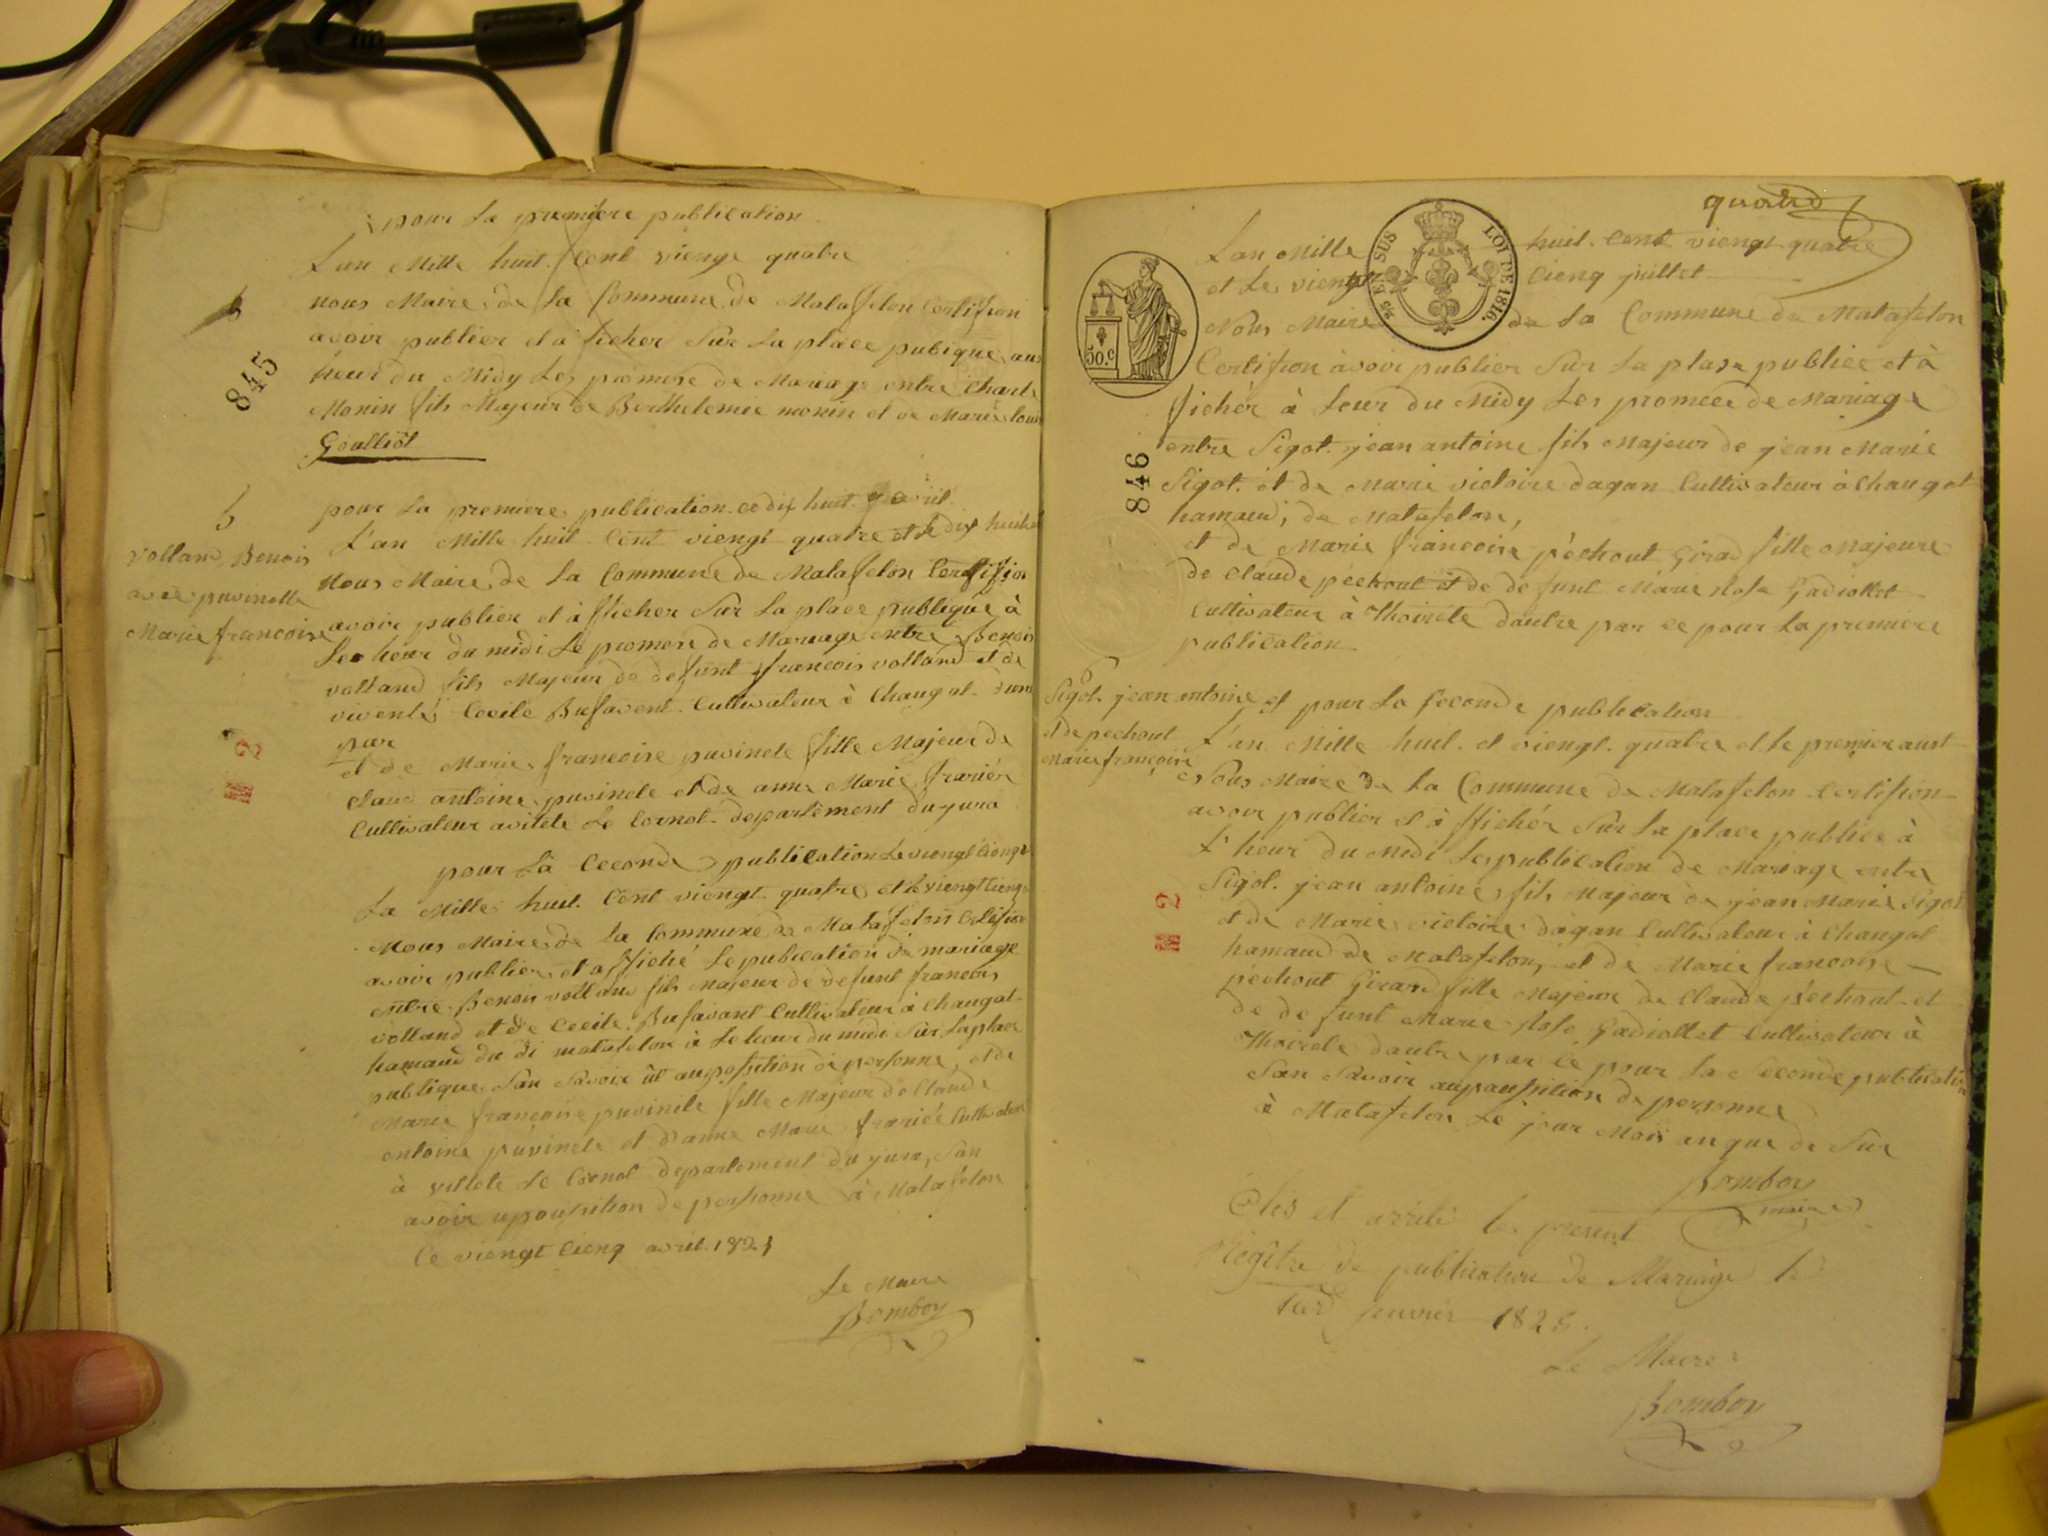 pour La premiere publication
L'an Mille huit Cent vienge quatre
nous Maire de La Commune de Matafelon Certifion
avoir publier et a ficher Sur La place pubique au
heur du Midy Les promese de Mariage entre Charle
Monin fils Majeur de Berthelemie monin et de Marie
Goulliot
845
6
Volland Benois
avec puvinelle
Marie francoise
pour La premiere publication ce dix huit avril
L'an Mille huit Cent viengt quatre et le dix huit
Nous Maire de La Commune de Matafelon Certifion
avoir publier et à fficher Sur La place publique à
Les heur du midi Le promese de Mariage entre Benois
volland fils Majeur de defunt francois volland et de
vivente Cecile Bufavent Cultivateur à Changat d'une
par
et de Marie francoise puvinete fille Majeur de
Claud antoine puvinete et de anne Marie frarier
Cultivateur a vilete Le Cornot departement du jura
2
pour La Ceconde publication Le viengt Cienge
La Mille huit Cent viengt quatre et le viengt Cienq
Nous Maire de La Commune de Matafelon Certifion
avoir publier et affiché Le publication de mariage
entre Benois volland fils Majeur de defunt francois
volland et de Cecile Bufavant Cultivateur à Changat
hamaud du di matafelon à Le heur du midi Sur La place
publique San Savoir ut auposition de personne, et de
Marie francoise puvinile fille Majeur de Claude
antoine puvinete et d'anne Marie frarier Cultivateur
à villete Le Cornot departement du jura, San
avoir upousition de personne à Matafelon
Ce viengt Cienq avril 1824
Le Maire
Bomboy
quatre
L'an Mille huit Cent viengt quatre
et Le viengt Cienq juillet
50.c
25 E. SUS
LOI DE 1816.
Nous Maire de La Commune de Matafelon
Certifion avoir publier Sur La plase publice et à
ficher à Leur du Midy Les promece de Mariage
entre Sigot jean antoine fils Majeur de jean Marie
Sigot et de Marie victoire dagan Cultivateur à Changat
hamaud, de Matafelon,
et de Marie francoise péchout Girad fille Majeure
de Claude péchout et de defunt Marie Rose Gadiollet
Cultivateur à Thoirete dautre par ce pour La premiere
publication
846
Sigot jean antoine
et de pechout
Marie françoise
et pour La seconde publication
L'an Mille huit et viengt quatre et le premier aust
Nous Maire de La Commune de Matafelon Certifion
avoir publier et à ffichér Sur La place publice à
L'heur du Midi Les publication de Mariage entre
Sigot jean antoine fils Majeur de jean Marie Sigot
et de Marie victoire dagan Cultivateur à Changat
hamaud de Matafelon, et de Marie francoise
péchout Girard fille Majeur de Claude péchout et
de defunt Marie Rose Gadiollet Cultivateur à
Thoirete dautre par ce pour La Seconde publication
San Savoir aupausition de personne
à Matafelon Le jour Mois an que de Sur
2
Bomboy
maire
Clos et arrêté le present
Régître de publication de Mariage le
janvier 1825.
Le Maire
Bomboy